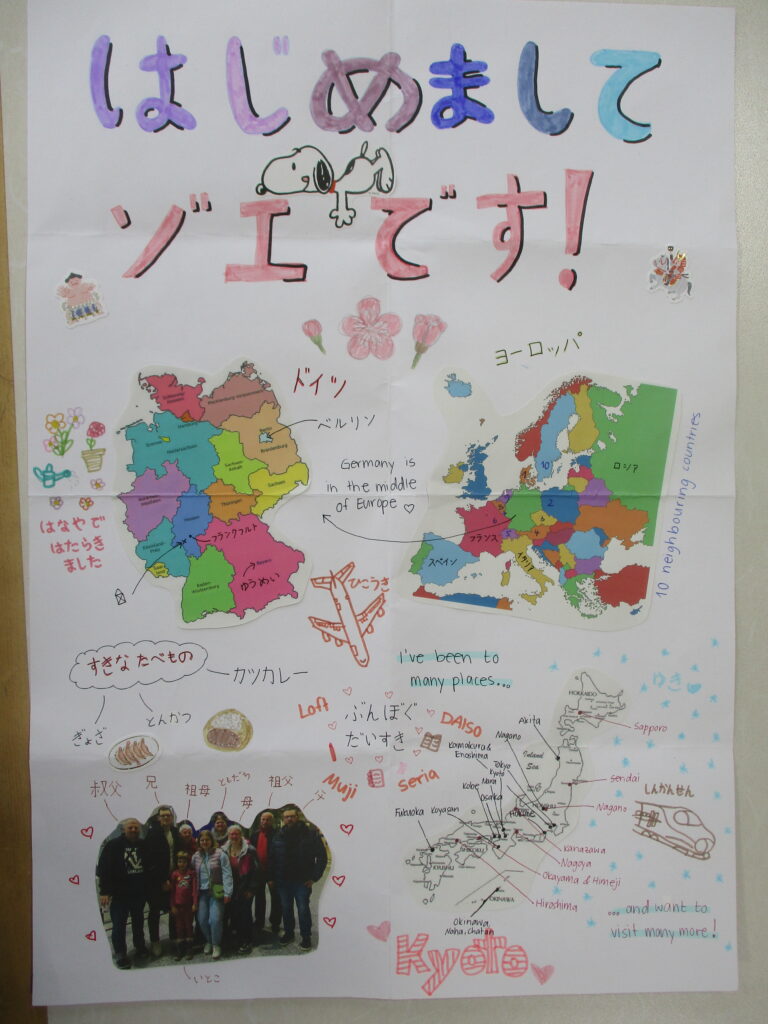 はじめまして
ゾエです!
ドイツ
ヨーロッパ
ベルリン
Germany is
in the middle
of Europe ♡
10 neighbouring countries
Hamburg
Bremen
Niedersachsen
Berlin
Brandenburg
Sachsen-
Anhalt
Sachsen
Thüringen
Hessen
Bayern
フランクフルト
ゆうめい
ロシア
フランス
スペイン
イタリア
はなやで
はたらき
ました
ひこうき
すきなたべもの
カツカレー
とんかつ
ぎょざ
I've been to
many places...
ゆき
Loft
ぶんぼぐ
だいすき
DAISO
I
Muji
seria
HOKKAIDO
Sapporo
Akita
Nagano
Kamakura &
Enoshima
Inland
Sea
Tokyo
Kyoto
Nara
Kobe
Osaka
Sendai
Nagano
しんかんせん
Fukuoka
Koyasan
Kanazawa
Nagoya
Okayama & Himeji
Hiroshima
OKINAWA
Okinawa,
Naha, Chatan
...and want to
visit many more!
叔父
兄
祖母
ともだち
母
祖父
父
いとこ
Kyoto